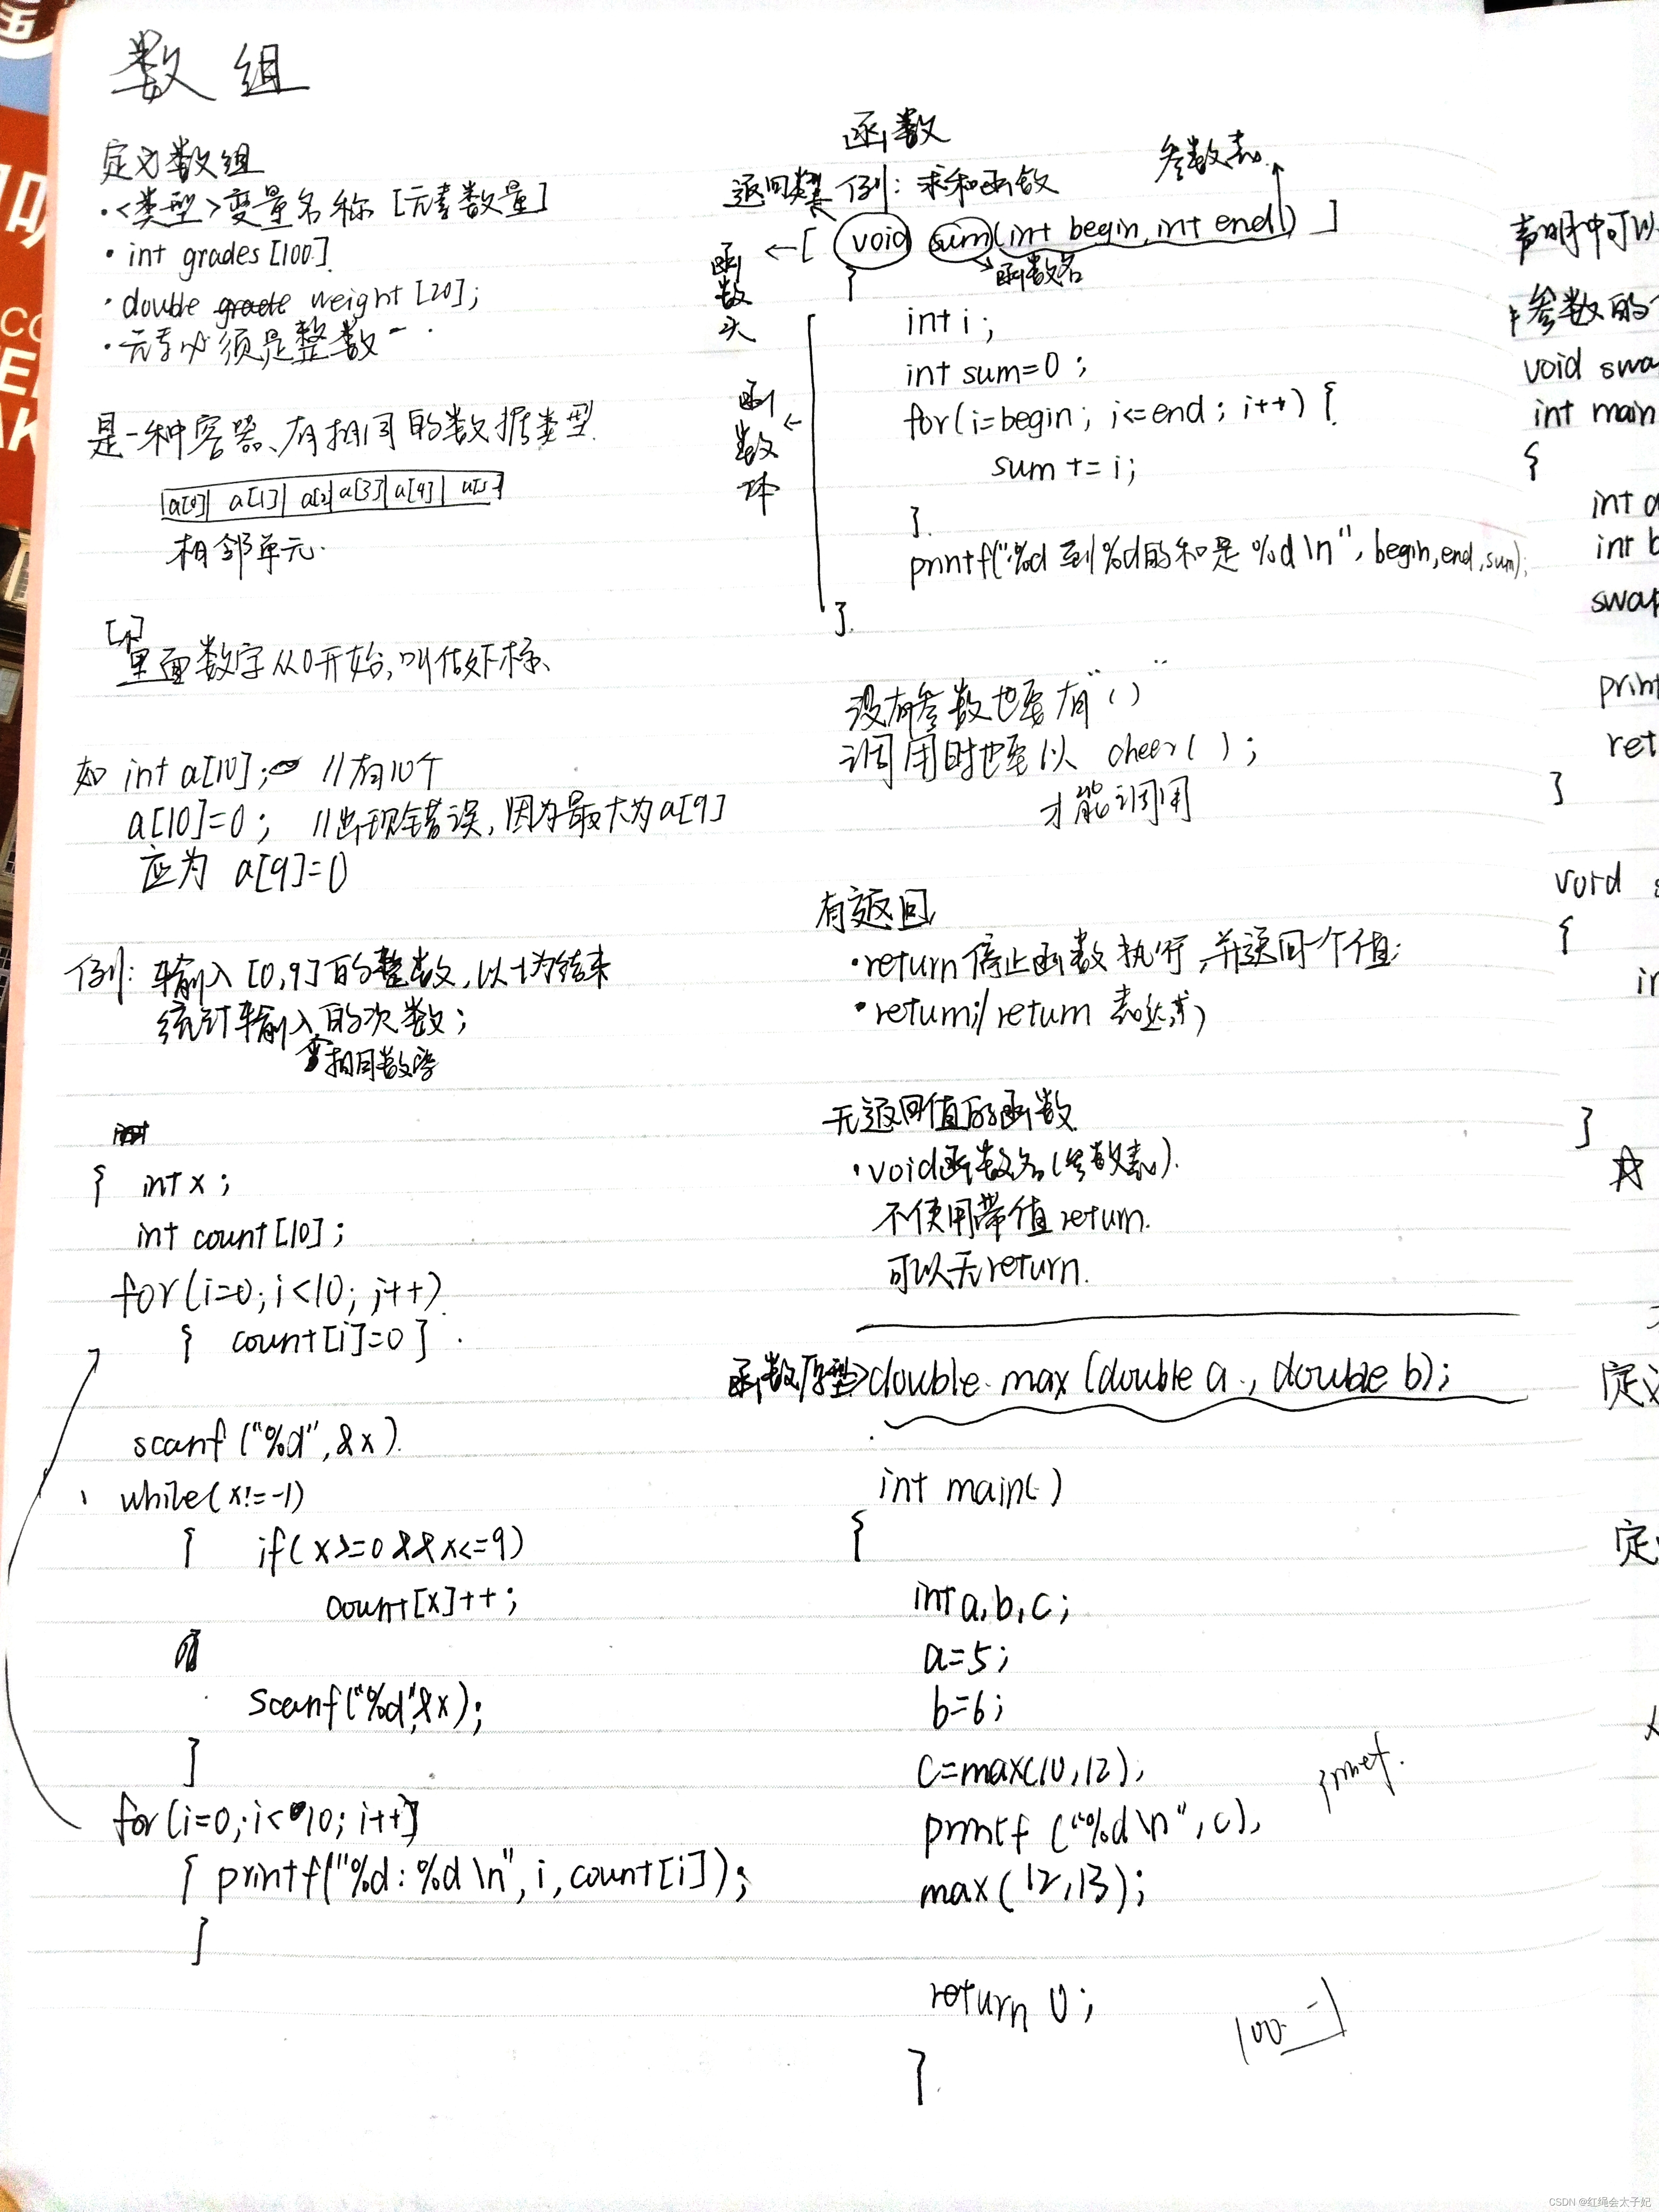 数组
定义数组
·<类型>变量名称[元素数量]
·int grades[100]
·double weight[20];
·元素必须是整数
是一种容器、有相同的数据类型.
a[0] a[1] a[2] a[3] a[4]
相邻单元.
[ ]
里面数字从0开始,叫做下标、
如 int a[10]; //有10个
a[10]=0; //出现错误,因为最大为a[9]
应为 a[9]=0
例: 输入[0,9]的整数,以-1为结束
统计输入的次数;
相同数字
{ int x;
int count[10];
for(i=0;i<10;i++)
{ count[i]=0 }.
scanf("%d",&x).
while(x!=-1)
{ if(x>=0&&x<=9)
count[x]++;
scanf("%d",&x);
}
for(i=0;i<10;i++)
{ printf("%d:%d\n",i,count[i]);
}
函数
参数表
返回类型 例: 求和函数
函数头 ←[ void sum(int begin,int end) ]
函数名
{
int i;
int sum=0;
函数体 ←
for(i=begin; i<=end; i++) {
sum += i;
}.
printf("%d到%d的和是%d\n", begin,end,sum);
}.
没有参数也要有"()"
调用时也要以 cheer();
才能调用
有返回
·return停止函数执行,并返回一个值;
·return;/return 表达式;
无返回值的函数
·void函数名(参数表).
不使用带值return.
可以无return.
函数原型>double max(double a, double b);
int main()
{
int a,b,c;
a=5;
b=6;
c=max(10,12),
printf("%d\n",c),
max(12,13);
return 0;
}.
100
声明中可以
参数的
void swa
int main
{
int a
int b
swap
print
ret
}
void s
{
in
}
☆
定义
定
CSDN @红绳会太子妃